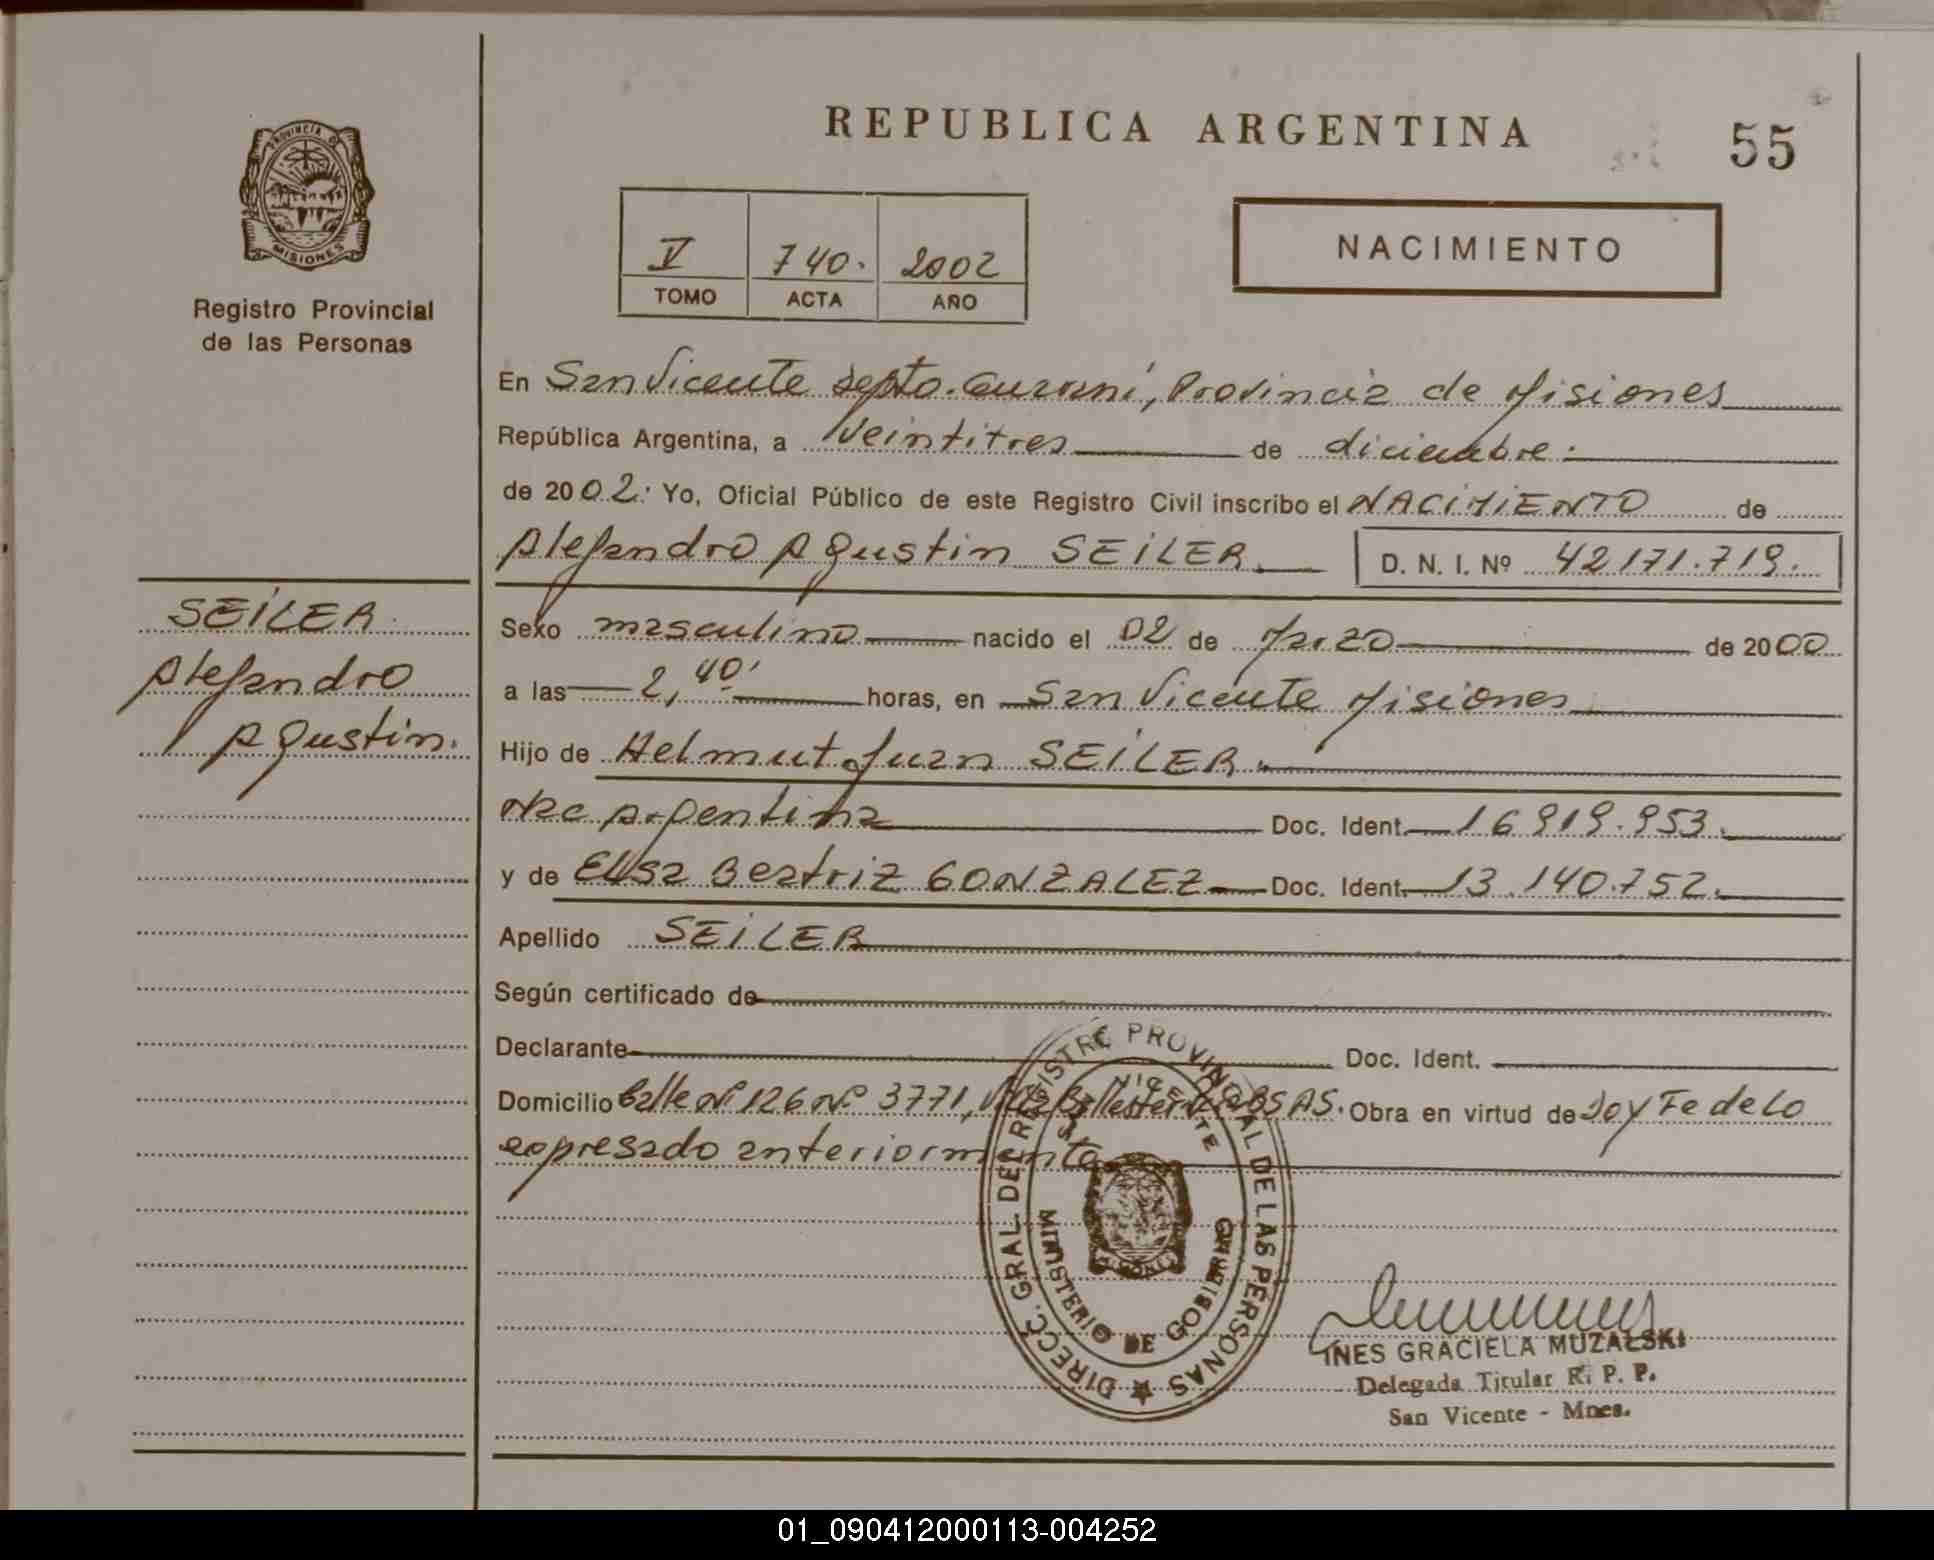 REPUBLICA ARGENTINA
55
PROVINCIA DE
MISIONES
Registro Provincial
de las Personas
V 740. 2002
TOMO ACTA AÑO
NACIMIENTO
En San Vicente Depto. Guaraní, Provincia de Misiones
República Argentina, a Veintitres de diciembre.
de 2002. Yo, Oficial Público de este Registro Civil inscribo el NACIMIENTO de
Alejandro Agustin SEILER. D. N. I. Nº 42171.719.
SEILER
Alejandro
Agustin.
Sexo masculino nacido el 02 de Marzo de 2000
a las 2,40' horas, en San Vicente Misiones
Hijo de Helmut Juan SEILER.
Nac Argentina Doc. Ident. 16919.953.
y de Elsa Beatriz GONZALEZ Doc. Ident. 13.140.752.
Apellido SEILER
Según certificado de
Declarante Doc. Ident.
Domicilio Calle Nº 126 Nº 3771, Villa Ballester BS AS. Obra en virtud de Doy Fe de Lo
expresado anteriormente
DIRECC. GRAL. DEL REGISTRO PROVINCIAL DE LAS PERSONAS
SAN VICENTE
MINISTERIO DE GOBIERNO
MISIONES
INES GRACIELA MUZALSKI
Delegada Titular R. P. P.
San Vicente - Mnes.
01_090412000113-004252